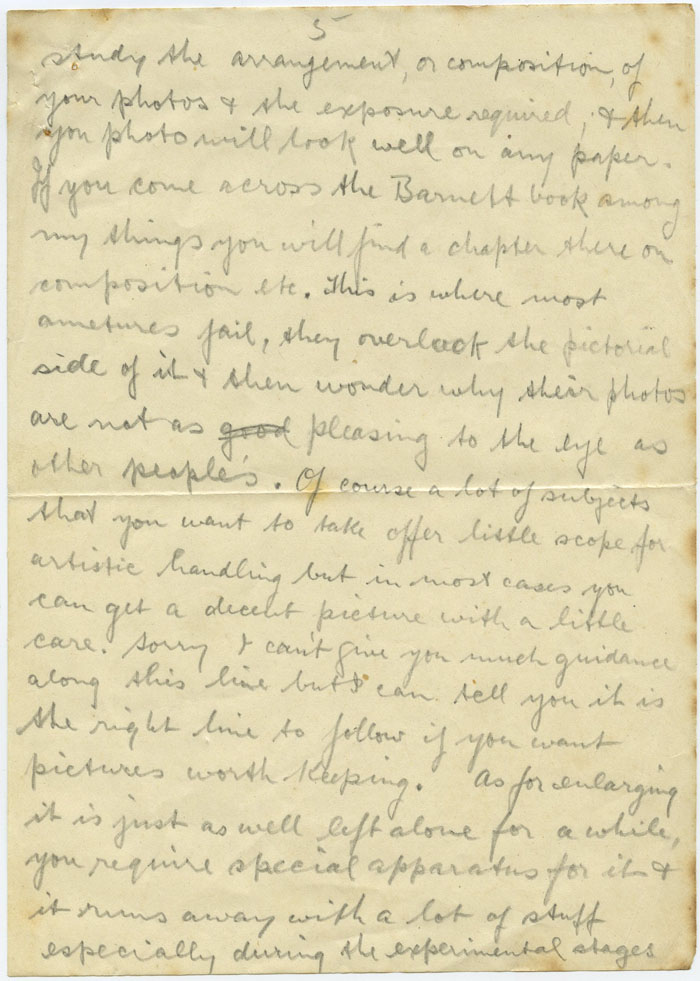 5
study the arrangement, or composition, of
your photos & the exposure required, & then
you photo will look well on any paper.
If you come across the Barnett book among
my things you will find a chapter there on
composition etc. This is where most
ametures fail, they overlook the pictorial
side of it & then wonder why their photos
are not as good pleasing to the eye as
other people's. Of course a lot of subjects
that you want to take offer little scope for
artistic handling but in most cases you
can get a decent picture with a little
care. Sorry I can't give you much guidance
along this line but I can tell you it is
the right line to follow if you want
pictures worth keeping. As for enlarging
it is just as well left alone for a while,
you require special apparatus for it &
it runs away with a lot of stuff
especially during the experimental stages